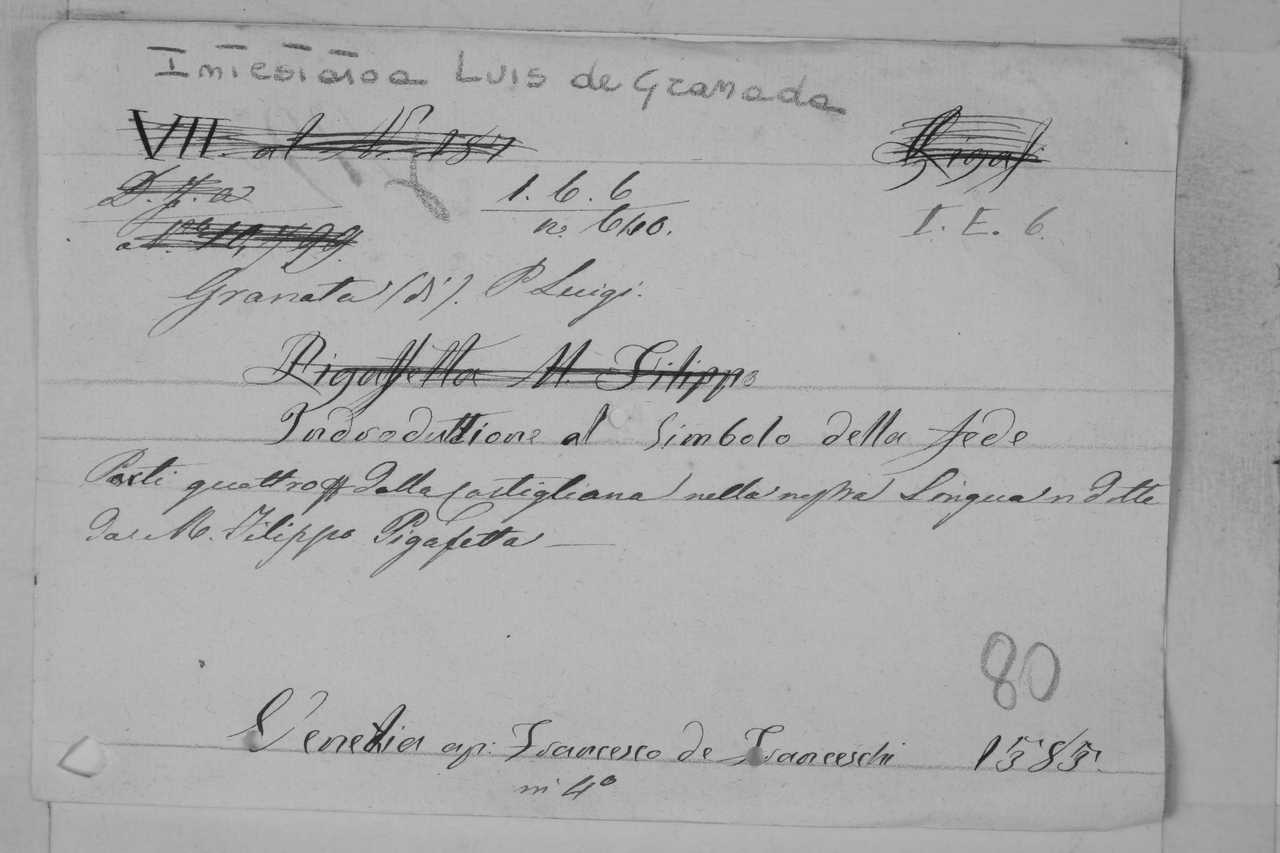 Luis de Granada
VII. al N. 187
1. 6. 6
n. 640.
I. E. 6.
Granata (di). P. Luigi.
Pigaffetta M. Filippo
Indroduttione al Simbolo della fede
Parti quattro dalla Castigliana nella nostra Lingua ridotte
da M. Filippo Pigafetta
80
Venetia ap: Francesco de Franceschi 1585.
in 4°